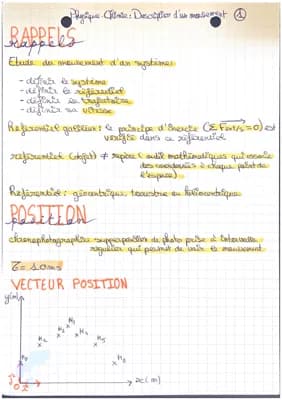 Physique-Chimie: Description d'un mouvement ①
RAPPELS
rappels
Etude du mouvement d'un système:
- définir le système
- définir le référentiel
- définir sa trajectoire
- définir sa vitesse
Referentiel galiléen: le principe d'inertie (ΣFext/s=0) est
vérifié dans ce référentiel
referentiel (objet) ≠ repère (outil mathématiques qui associe
des coordonnées à chaque point de
l'espace)
Referentiel: géocentrique, terrestre ou héliocentrique
POSITION
position
chronophotographie: superposition de photo prise à intervalle
régulier qui permet de voir le mouvement
τ = 10ms
VECTEUR POSITION
y(m)
M₃
M₂
M₄
M₅
M₆
j
O
i
x(m)